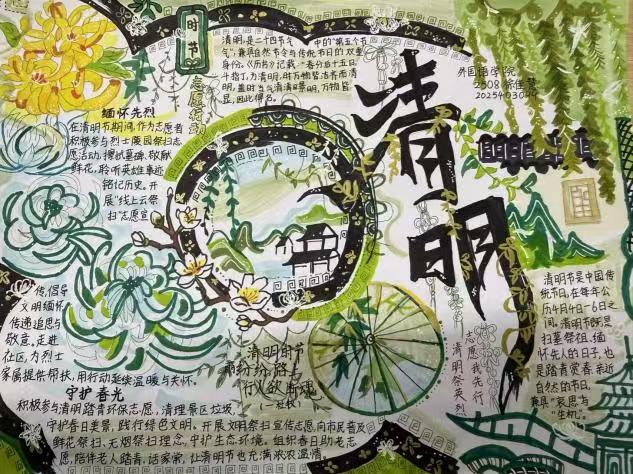 时节
志愿行动
清明,是二十四节气中的"第五个节
气",兼具自然节令与传统节日的双重
身份。《历书》记载:"春分后十五日
斗指丁,为清明,时万物皆洁齐而清
明,盖时当气清景明,万物皆
显,因此得名。
外国语学院
清明
缅怀先烈
在清明节期间,作为志愿者
积极参与烈士陵园祭扫志
愿活动,擦拭墓碑、敬献
鲜花,聆听英雄事迹
铭记历史。开
展"线上云祭
扫"志愿宣
传,倡导
文明缅怀
传递追思与
敬意。走进
社区,为烈士
家属提供帮扶,用行动延续温暖与关怀。
守护春光
积极参与清明踏青环保志愿,清理景区垃圾,
守护春日美景,践行绿色文明。开展文明祭扫宣传志愿,向市民普及
鲜花祭扫、无烟祭扫理念,守护生态环境。组织春日助老志
愿,陪伴老人踏青、话家常,让清明节也充满浓浓温情。
清明时节
雨纷纷,路上
行人欲断魂
(一杜牧)
志愿我先行
清明祭英烈
清明节是中国传
统节日,在每年公
历4月4日-6日之
间。清明节既是
扫墓祭祖、缅
怀先人的日子,也
是踏青赏春、亲近
自然的节日。
兼具"哀思与
"生机"。